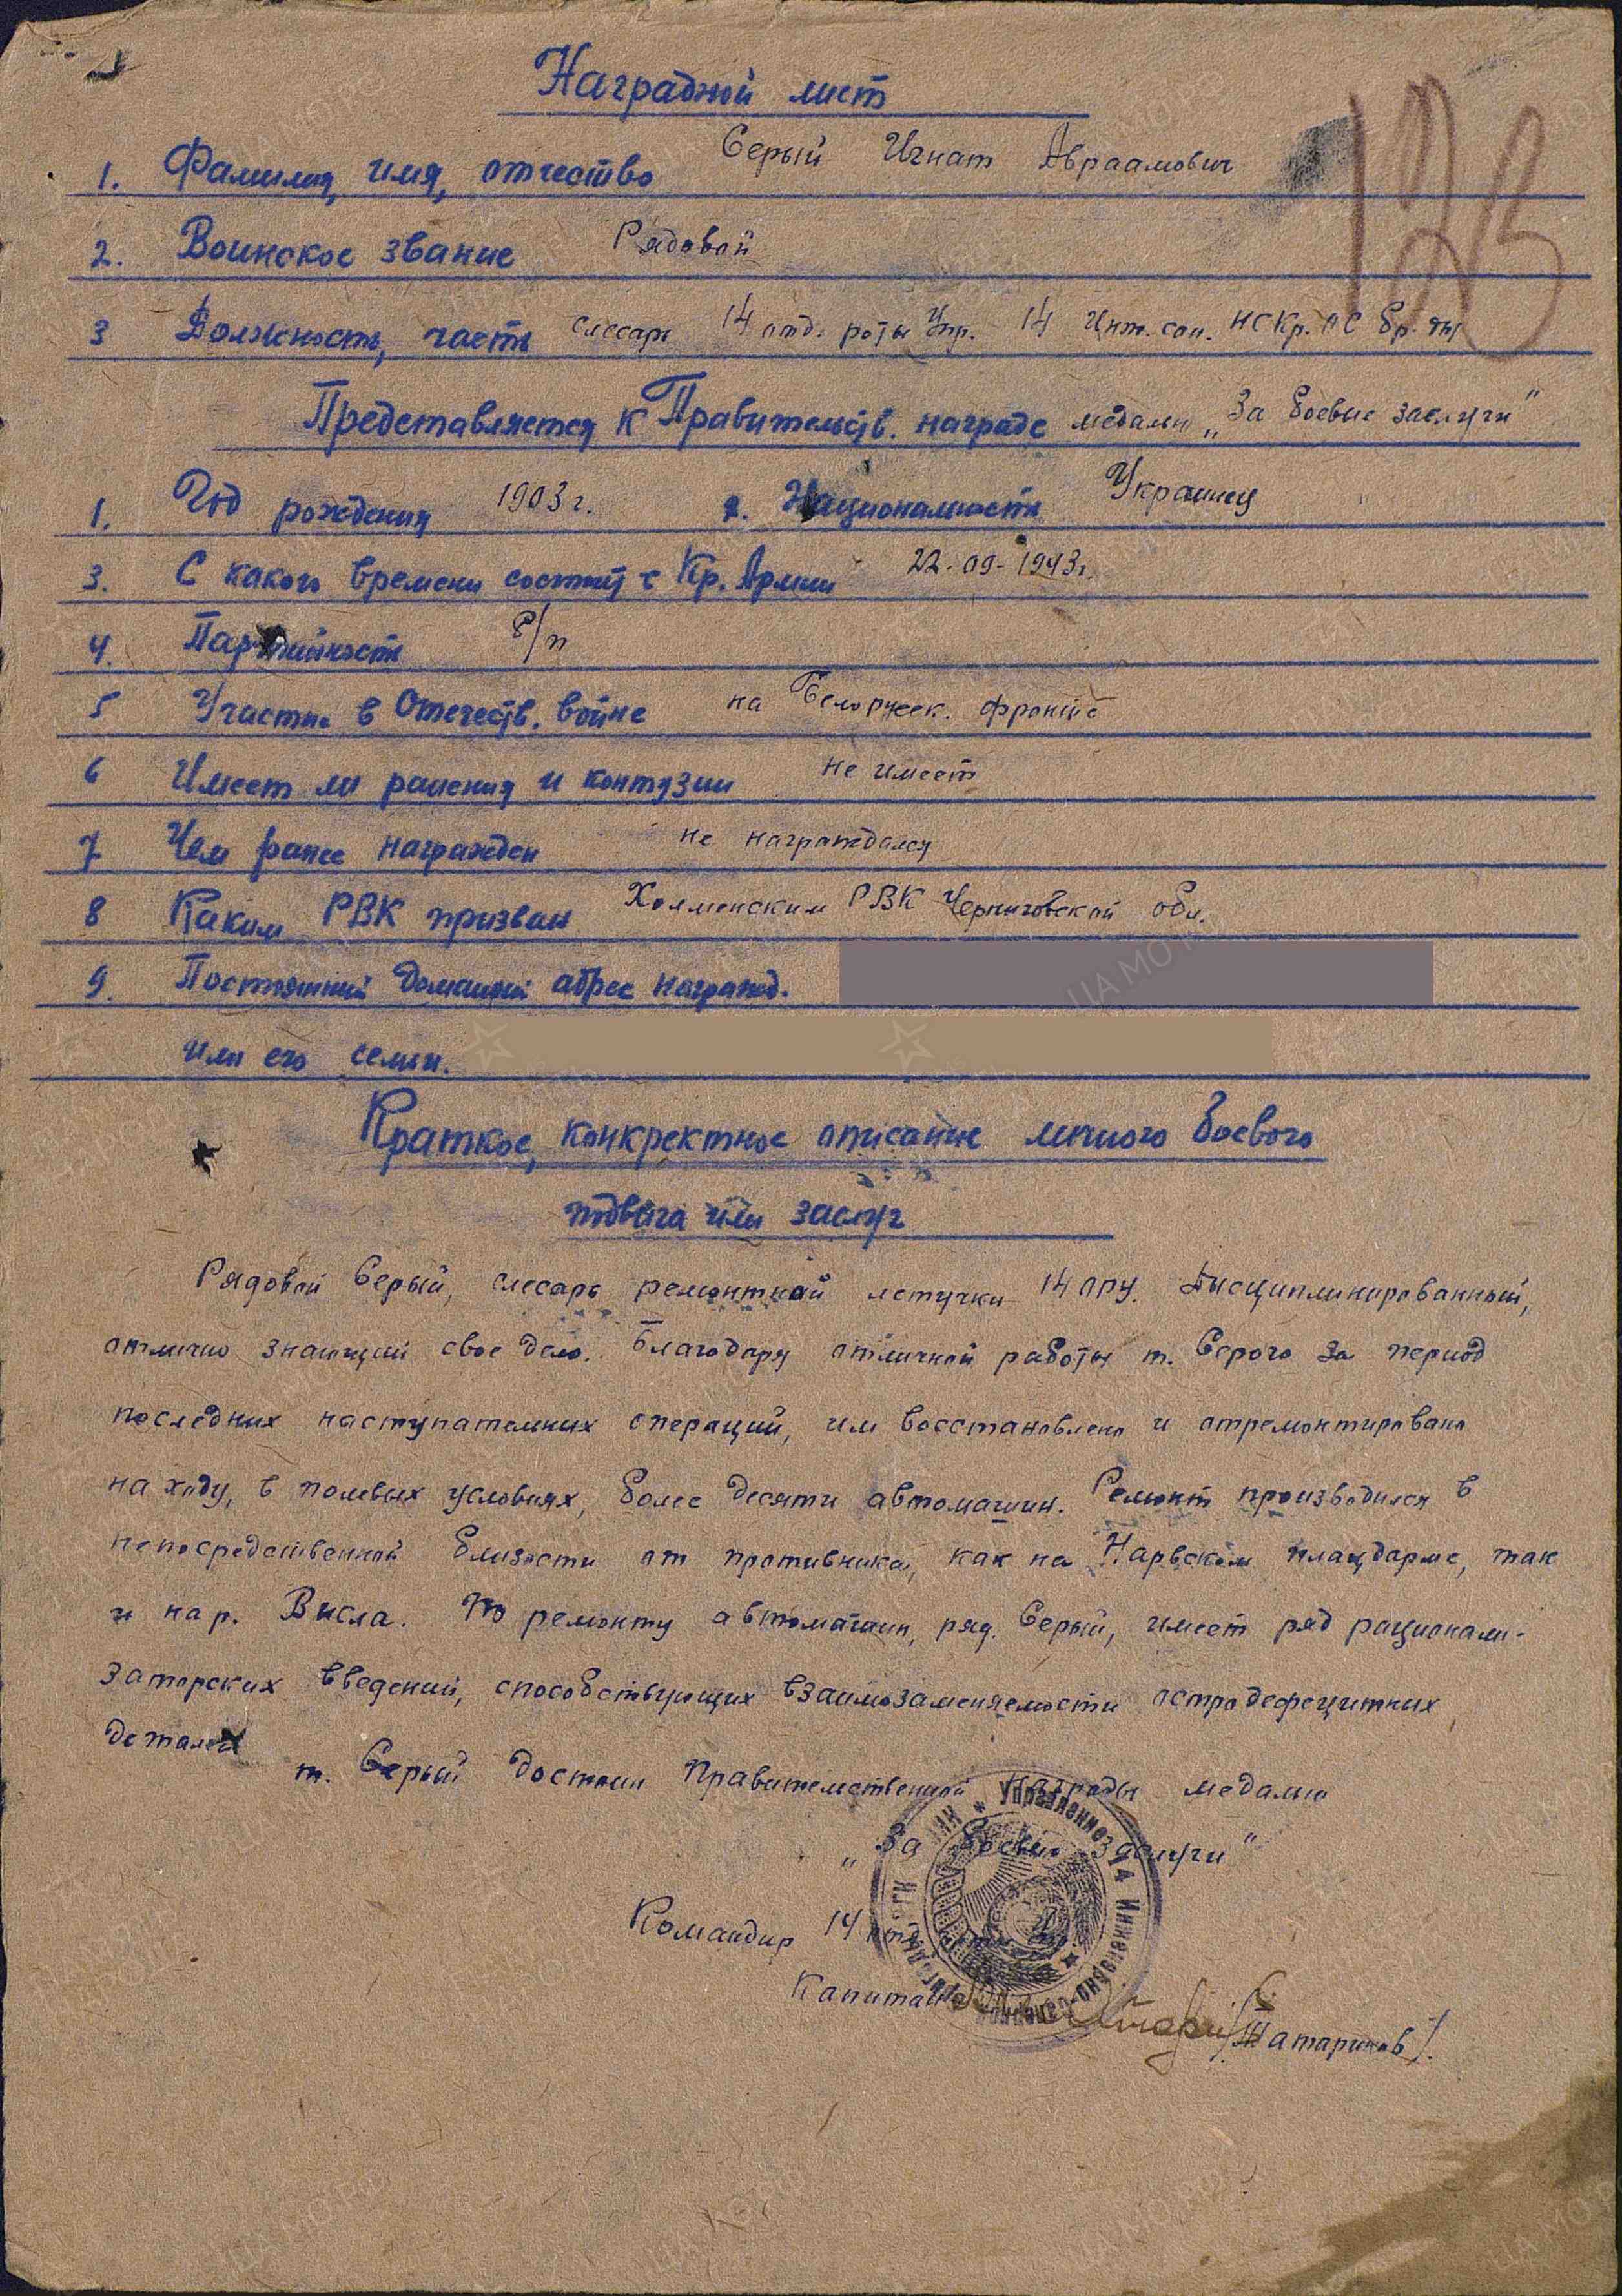 Наградной лист
123
1. Фамилия, имя, отчество Серый Игнат Авраамович
2. Воинское звание Рядовой
3 Должность, часть слесарь 14 отд. роты Упр. 14 Инж. сап. НСКр. ОС бр-ды
Представляется к Правительств. награде медалью „За боевые заслуги"
1. Год рождения 1903 г. 2. Национальность Украинец
3. С какого времени состоит в Кр. Армии 22-09-1943 г.
4. Партийность б/п
5 Участие в Отечеств. войне на Белорусск. фронте
6 Имеет ли ранения и контузии не имеет
7 Чем ранее награжден не награждался
8 Каким РВК призван Холменским РВК Черниговской обл.
9. Постоянный домашний адрес награжд.
или его семьи.
Краткое, конкректное описание личного боевого
подвига или заслуг
Рядовой Серый, слесарь ремонтной летучки 14 ОРУ. Дисциплинированный,
отлично знающий свое дело. Благодаря отличной работы т. Серого за период
последних наступательных операций, им восстановлено и отремонтировано
на ходу, в полевых условиях, более десяти автомашин. Ремонт производился в
непосредственной близости от противника, как на Нарвском плацдарме, так
и на р. Висла. По ремонту автомашин, ряд. Серый, имеет ряд рационали-
заторских введений, способствующих взаимозаменяемости остродефецитных
деталей
т. Серый достоин Правительственной награды медалью
„За боевые заслуги"
Командир 14 отд.
Капитан /Татаринов/.
Управление 14 Инженерно-саперной